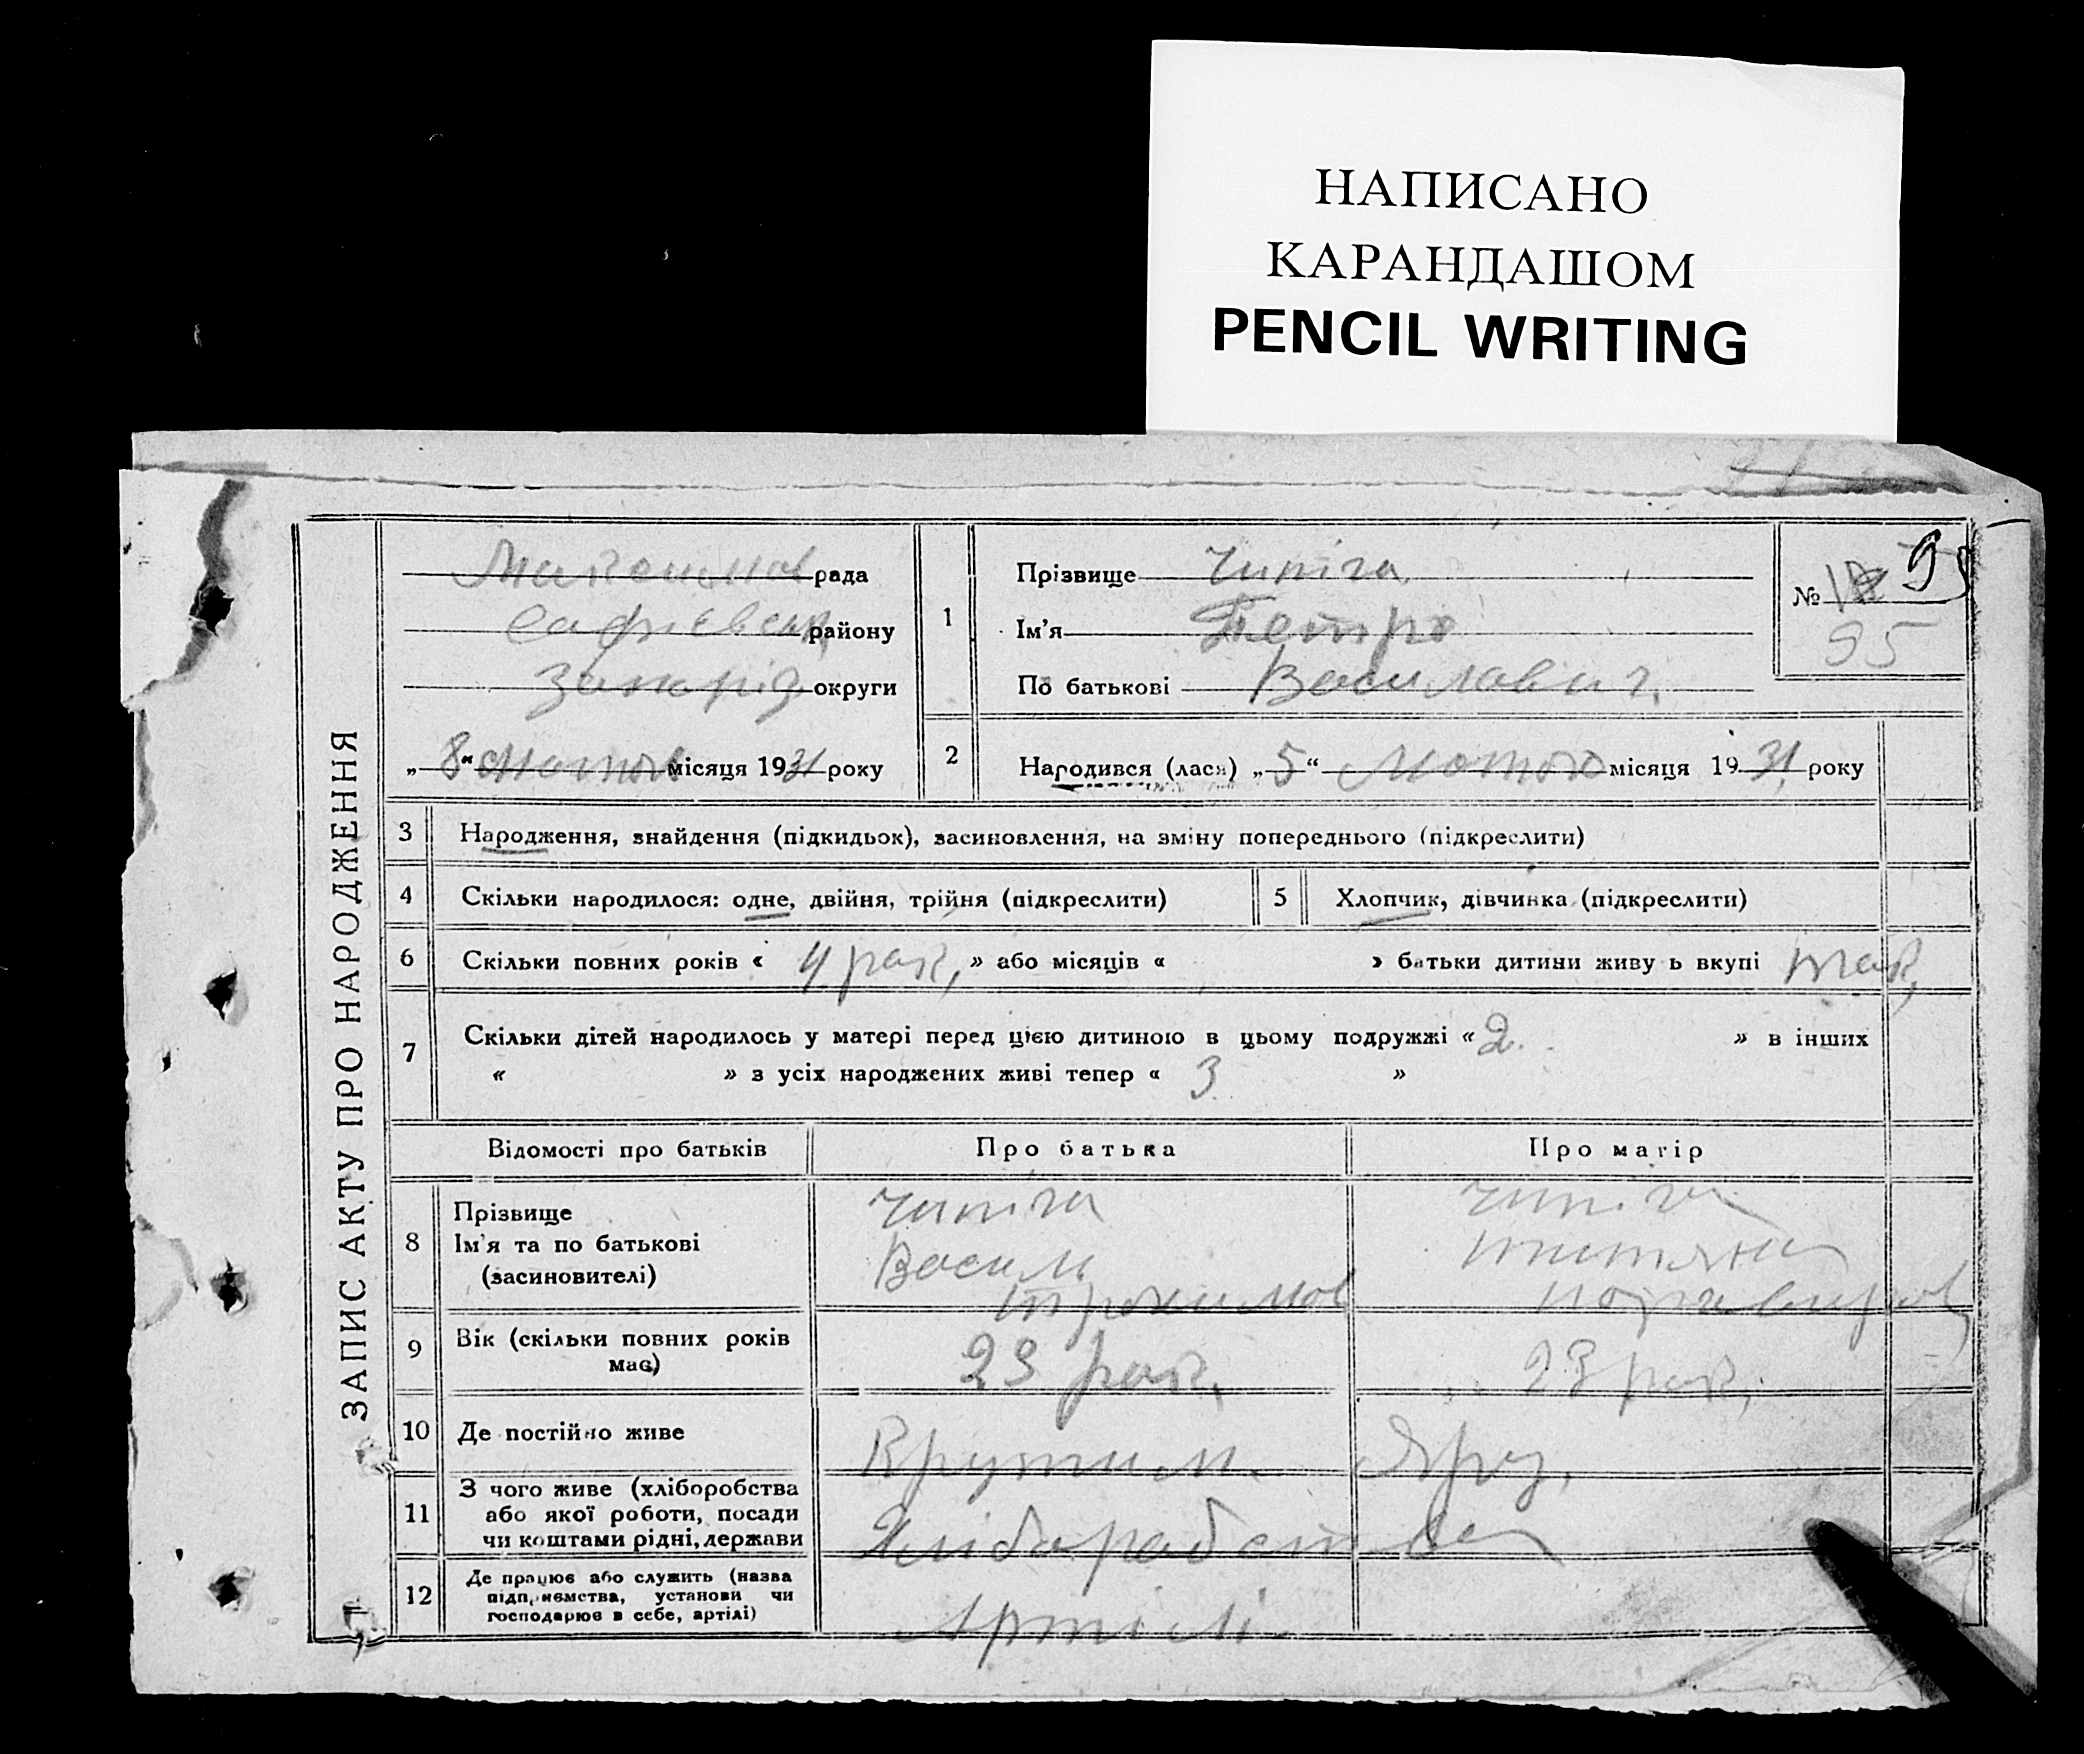 НАПИСАНО
КАРАНДАШОМ
PENCIL WRITING
ЗАПИС АКТУ ПРО НАРОДЖЕННЯ
рада
району
Запоріз округи
„8“ Лютого місяця 1931 року
1
Прізвище Чипіга
Ім'я Петро
По батькові Василович
№ 95
95
2 Народився (лася) „5“ Лютого місяця 1931 року
3 Народження, знайдення (підкидьок), засиновлення, на зміну попереднього (підкреслити)
4 Скільки народилося: одне, двійня, трійня (підкреслити) 5 Хлопчик, дівчинка (підкреслити)
6 Скільки повних років « 4 рок, » або місяців « » батьки дитини живу ь вкупі так,
7 Скільки дітей народилось у матері перед цією дитиною в цьому подружжі « 2. » в інших
« » з усіх народжених живі тепер « 3 »
Відомості про батьків Про батька Про матір
8 Прізвище
Ім'я та по батькові
(засиновителі)
Чипіга
Василь
Трохимов
Чипіга
9 Вік (скільки повних років
має)
23 рок,
23 рок,
10 Де постійно живе Крутий Яр
11 З чого живе (хліборобства
або якої роботи, посади
чи коштами рідні, держави
Хліборобства
12 Де працює або служить (назва
підприємства, установи чи
господарює в себе, артілі)
Артілі